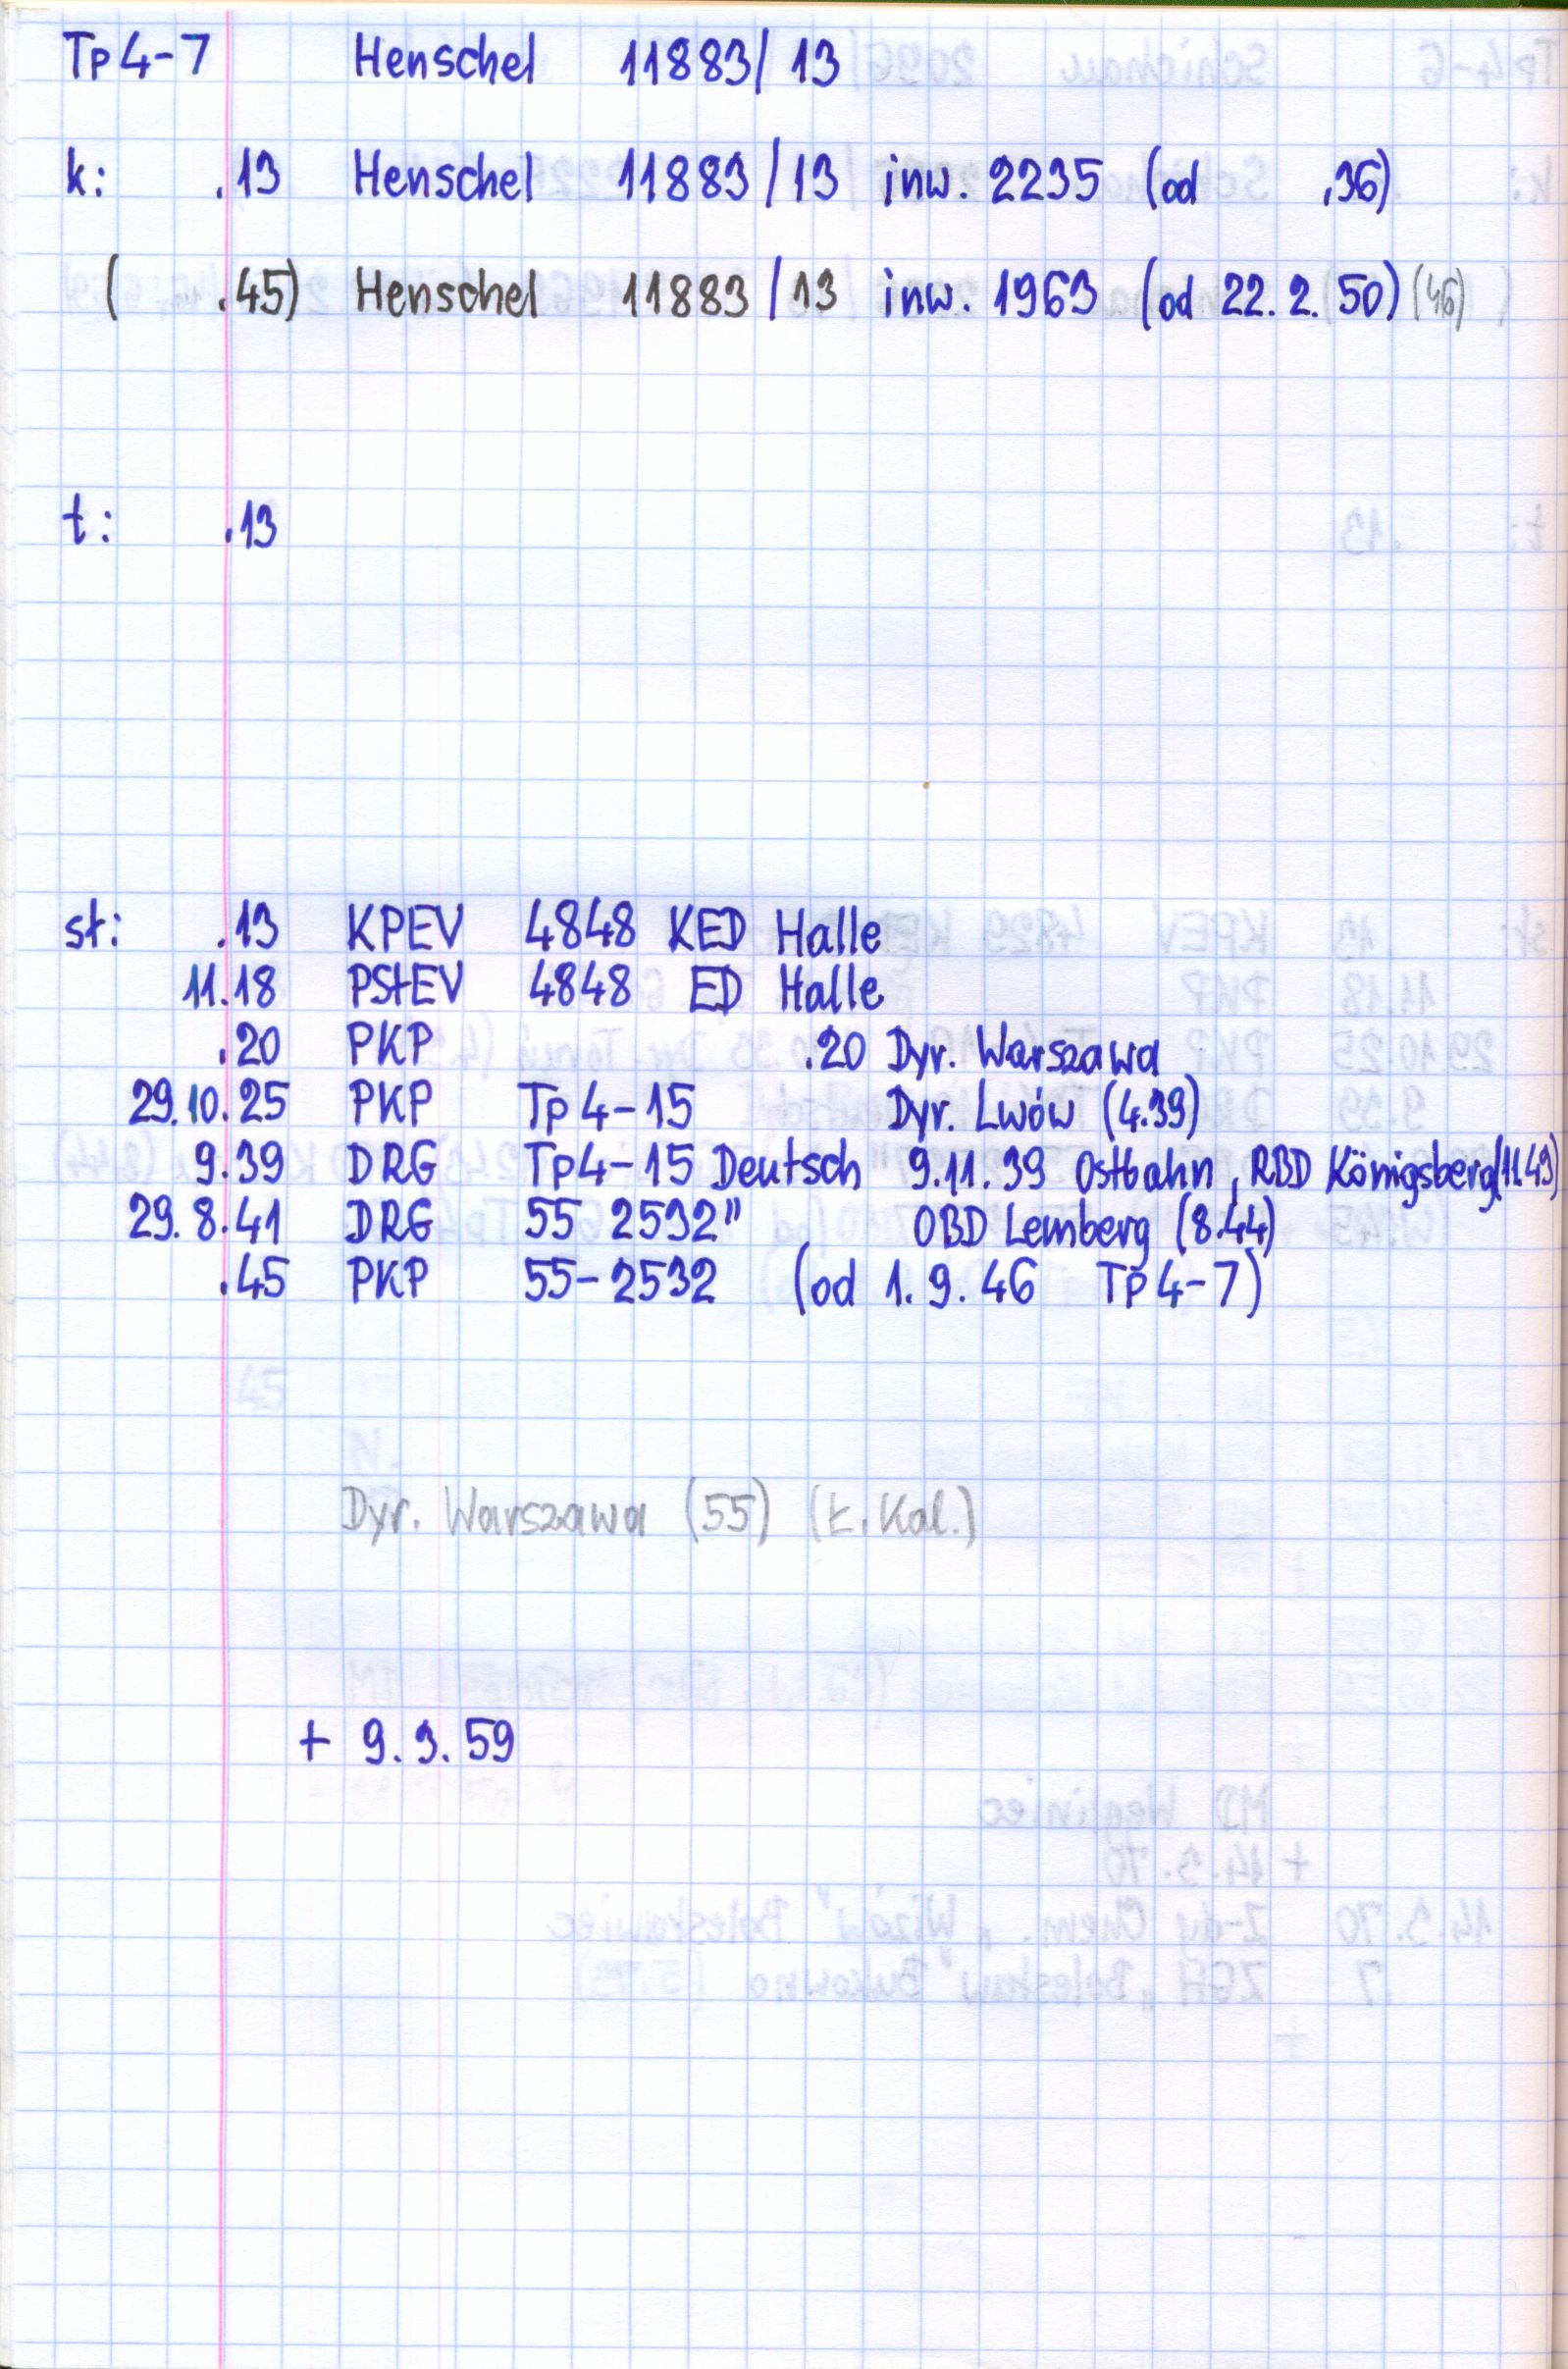 Tp4-7 Henschel 11883/13
k: .13 Henschel 11883/13 inw. 2235 (od .36)
( .45) Henschel 11883/13 inw. 1963 (od 22.2.50) (46)
t: .13
st: .13 KPEV 4848 KED Halle
11.18 PStEV 4848 ED Halle
.20 PKP .20 Dyr. Warszawa
29.10.25 PKP Tp4-15 Dyr. Lwów (4.39)
9.39 DRG Tp4-15 Deutsch 9.11.39 Ostbahn, RBD Königsberg (11.43)
29.8.41 DRG 55 2532" OBD Lemberg (8.44)
.45 PKP 55-2532 (od 1.9.46 Tp4-7)
Dyr. Warszawa (55) (Ł. Kal.)
+ 9.3.59